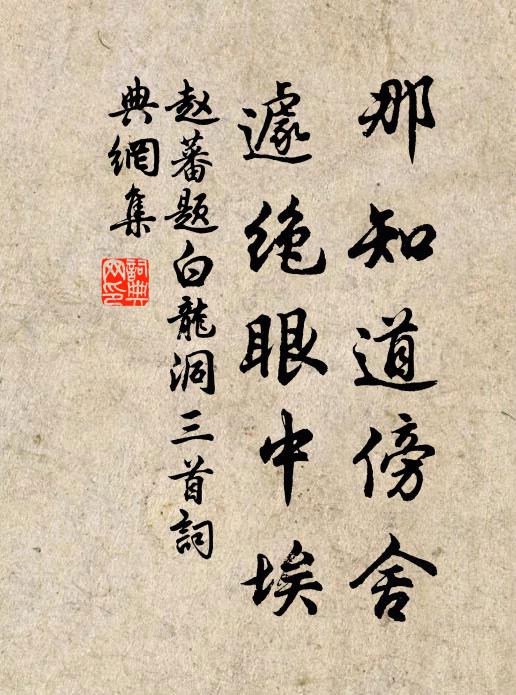 那知道傍舍
遽绝眼中埃
赵蕃题白龍洞三首詞
典網集
詞典
网印